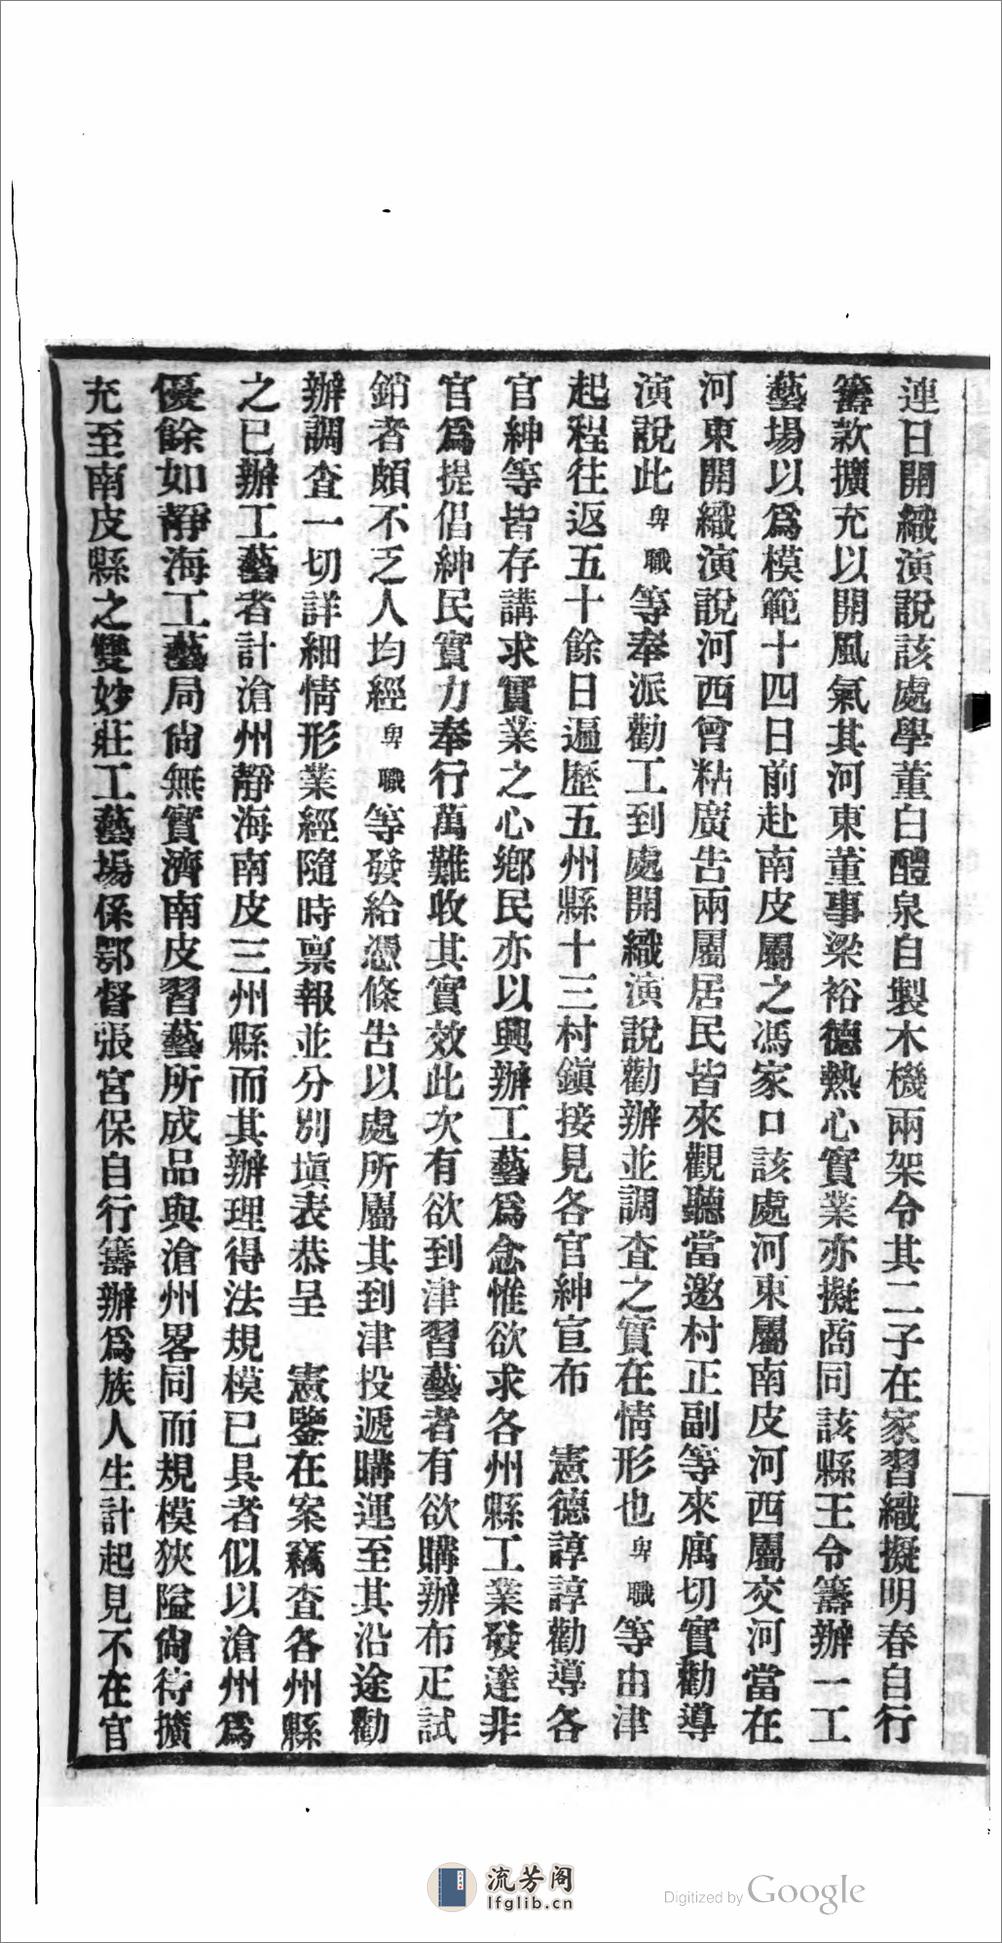 連日開織演說該處學董白醴泉自製木機兩架令其二子在家習織擬明春自行
籌款擴充以開風氣其河東董事梁裕德熱心實業亦擬商同該縣王令籌辦一工
藝場以爲模範十四日前赴南皮屬之馮家口該處河東屬南皮河西屬交河當在
河東開織演說河西曾粘廣告兩屬居民皆來觀聽當邀村正副等來寓切實勸導
演說此卑職等奉派勸工到處開織演說勸辦並調查之實在情形也卑職等由津
起程往返五十餘日遍歷五州縣十三村鎭接見各官紳宣布 憲德諄諄勸導各
官紳等皆存講求實業之心鄉民亦以興辦工藝爲念惟欲求各州縣工業發達非
官爲提倡紳民實力奉行萬難收其實效此次有欲到津習藝者有欲購辦布疋試
銷者頗不乏人均經卑職等發給憑條告以處所屬其到津投遞購運至其沿途勸
辦調查一切詳細情形業經隨時禀報並分別塡表恭呈 憲鑒在案竊查各州縣
之已辦工藝者計滄州靜海南皮三州縣而其辦理得法規模已具者似以滄州爲
優餘如靜海工藝局尙無實濟南皮習藝所成品與滄州畧同而規模狹隘尙待擴
充至南皮縣之雙妙莊工藝場係鄂督張宮保自行籌辦爲族人生計起見不在官
流芳阁
lfglib.cn
Digitized by Google